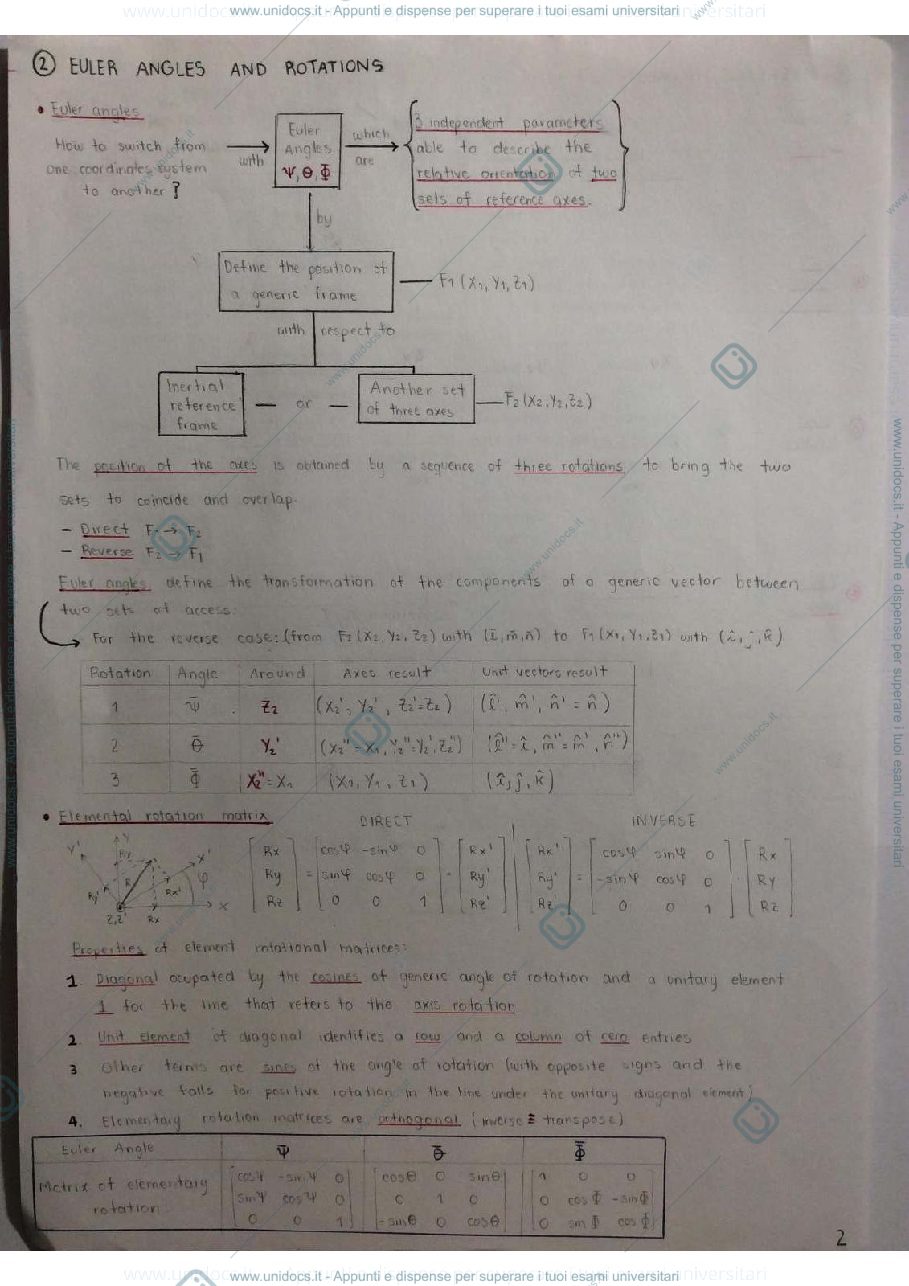 www.unidocs.it - Appunti e dispense per superare i tuoi esami universitari
② EULER ANGLES AND ROTATIONS
• Euler angles
How to switch from
one coordinates system
to another?
with
Euler
Angles
Ψ, Θ, Φ
which
are
3 independent parameters
able to describe the
relative orientation of two
sets of reference axes.
by
Define the position of
a generic frame
F1 (X1, Y1, Z1)
with respect to
Inertial
reference
frame
or
Another set
of three axes
F2 (X2, Y2, Z2)
The position of the axes is obtained by a sequence of three rotations to bring the two
sets to coincide and overlap.
- Direct F1 → F2
- Reverse F2 → F1
Euler angles define the transformation of the components of a generic vector between
two sets of access.
For the reverse case: (from F2 (X2, Y2, Z2) with (l̂, m̂, n̂) to F1 (X1, Y1, Z1) with (î, ĵ, k̂)
Rotation Angle Around Axes result Unit vectors result
1 Ψ Z2 (X2', Y2', Z2'=Z2) (l̂', m̂', n̂' = n̂)
2 Θ Y2' (X2'' = X1, Y2''=Y2', Z2'') (l̂''=î, m̂''=m̂', n̂'')
3 Φ X2''= X1 (X1, Y1, Z1) (î, ĵ, k̂)
• Elemental rotation matrix DIRECT INVERSE
Y' Y X' Ry R Rx' Ry' φ X Z,Z' Rx
[Rx] = [cosφ -sinφ 0] · [Rx'] | [Rx'] = [cosφ sinφ 0] · [Rx]
[Ry] [sinφ cosφ 0] [Ry'] | [Ry'] [-sinφ cosφ 0] [Ry]
[Rz] [0 0 1] [Rz'] | [Rz] [0 0 1] [Rz]
Properties of element rotational matrices:
1 Diagonal occupated by the cosines of generic angle of rotation and a unitary element
1 for the line that refers to the axis rotation
2. Unit element of diagonal identifies a row and a column of zero entries
3 Other terms are sines of the angle of rotation (with opposite signs and the
negative falls for positive rotation in the line under the unitary diagonal element)
4. Elementary rotation matrices are orthogonal (inverse = transpose)
Euler Angle Ψ Θ Φ
Matrix of elementary
rotation
[cosΨ -sinΨ 0] [cosΘ 0 sinΘ] [1 0 0]
[sinΨ cosΨ 0] [0 1 0] [0 cosΦ -sinΦ]
[0 0 1] [-sinΘ 0 cosΘ] [0 sinΦ cosΦ]
2
www.unidocs.it - Appunti e dispense per superare i tuoi esami universitari
www.unidocs.it - Appunti e dispense per superare i tuoi esami universitari